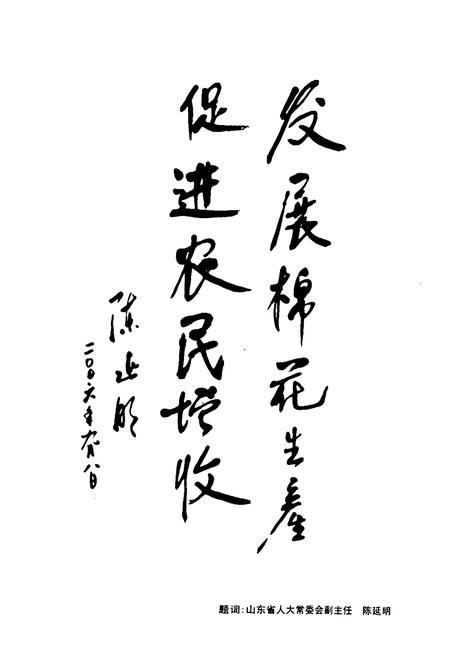 发展棉花生产
促进农民增收
陈延明
二〇〇六年九月八日
题词:山东省人大常委会副主任 陈延明